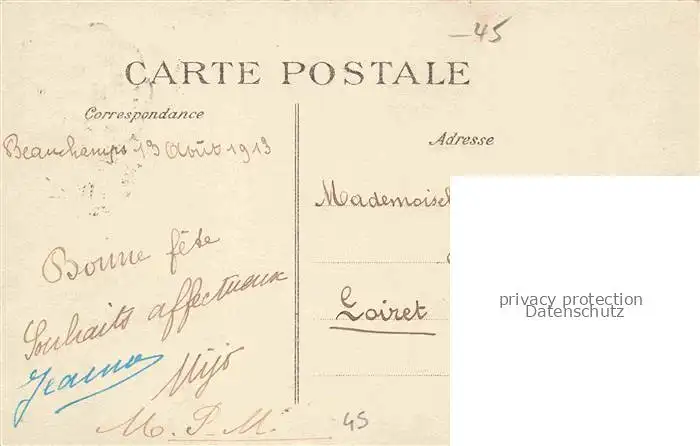 45
CARTE POSTALE
Correspondance
Beauchamps 13 Août 1913
Bonne fête
Souhaits affectueux
Jeanne
Mijo
M. P. M.
45
Adresse
Mademoisel
Loiret
privacy protection
Datenschutz